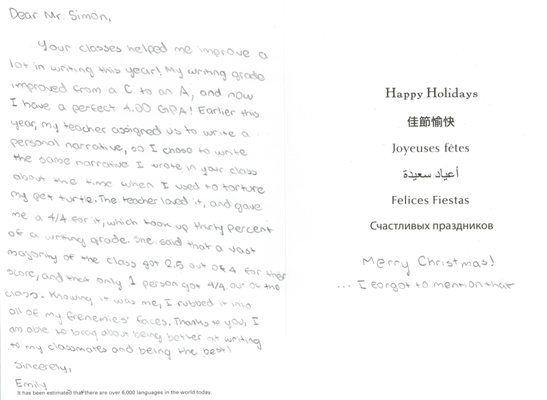 Dear Mr. Simon,
Your classes helped me improve a
lot in writing this year! My writing grade
improved from a C to an A, and now
I have a perfect 4.00 GPA! Earlier this
year, my teacher assigned us to write a
personal narrative, so I chose to write
the same narrative I wrote in your class
about the time when I used to torture
my pet turtle. The teacher loved it, and gave
me a 4/4 for it, which took up thirty percent
of a writing grade. She said that a vast
majority of the class got 2.5 out of 4 for their
score, and that only 1 person got 4/4 out of the
class. Knowing it was me, I rubbed it into
all of my frenemies' faces. Thanks to you, I
am able to brag about being better at writing
to my classmates and being the best!
Sincerely,
Emily
It has been estimated that there are over 6,000 languages in the world today.
Happy Holidays
佳節愉快
Joyeuses fêtes
أعياد سعيدة
Felices Fiestas
Счастливых праздников
Merry Christmas!
... I forgot to mention that